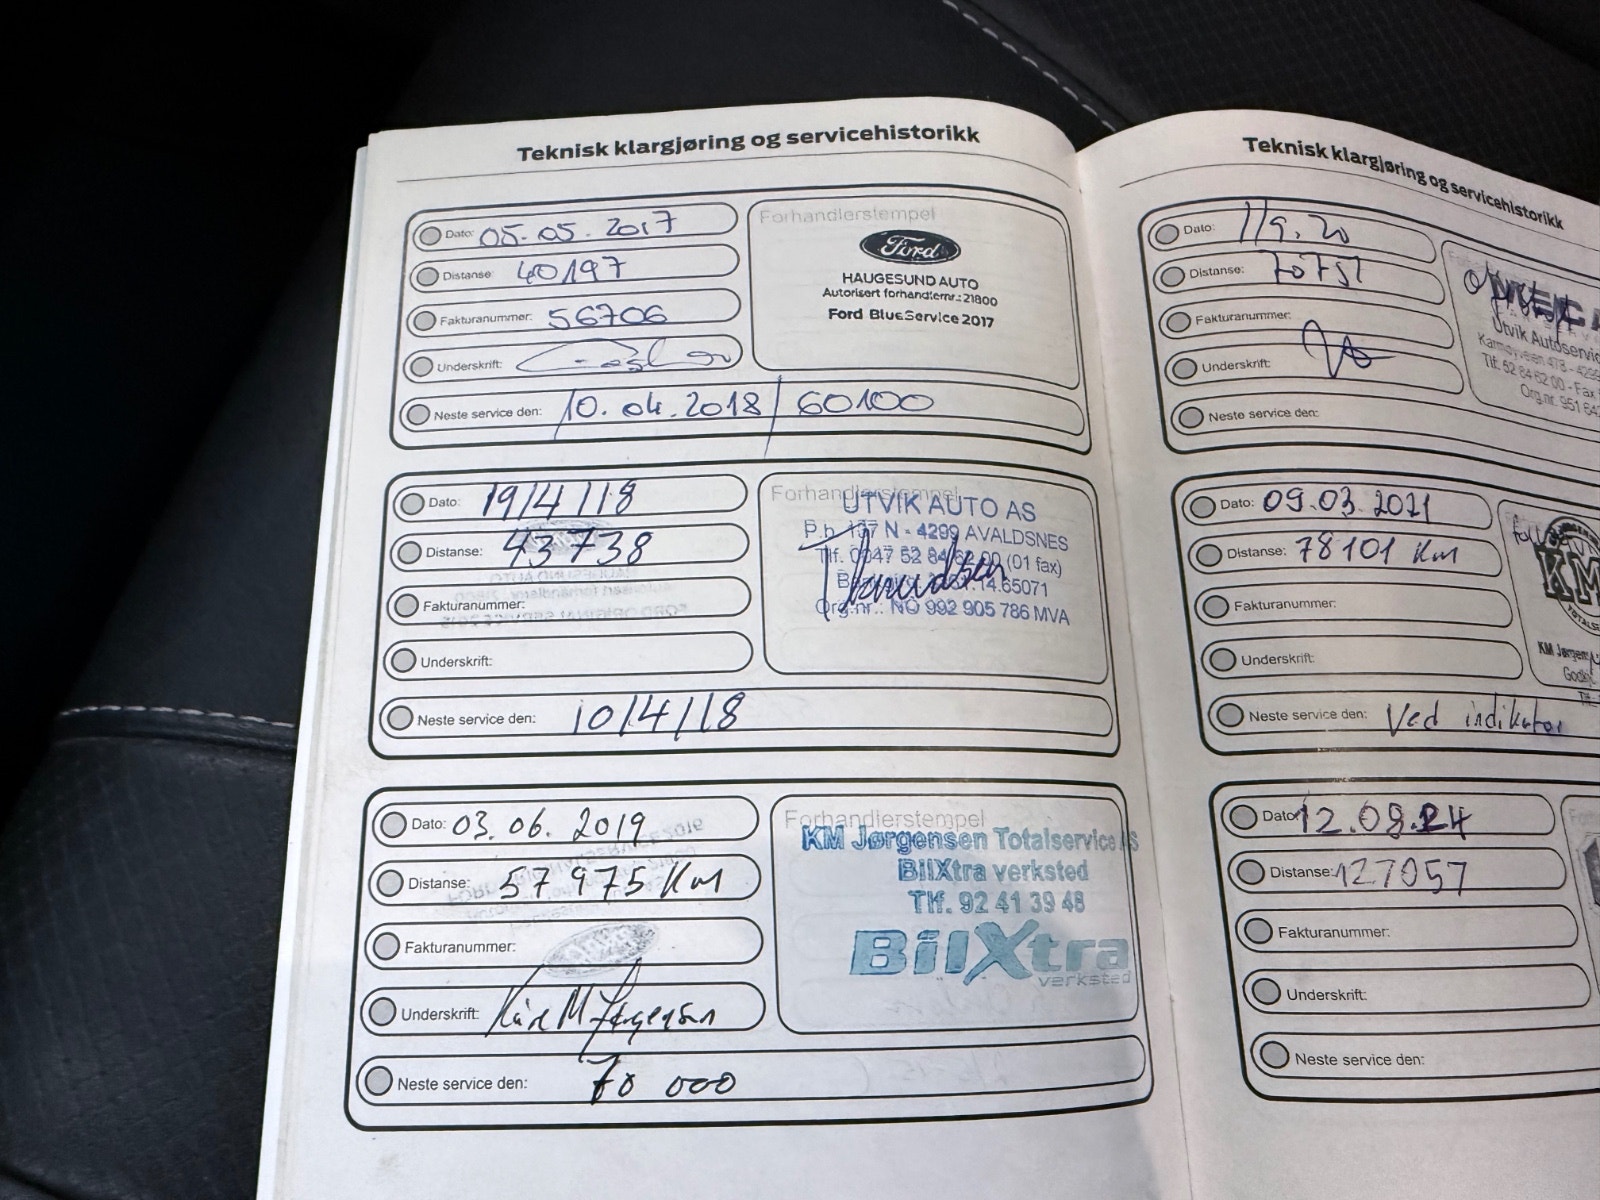 Teknisk klargjøring og servicehistorikk
Dato: 05.05.2017
Distanse: 40197
Fakturanummer: 56706
Underskrift:
Neste service den: 10.04.2018 / 60100
Forhandlerstempel
Ford
HAUGESUND AUTO
Autorisert forhandlernr.: 21800
Ford BlueService 2017
Dato: 19/4/18
Distanse: 43738
Fakturanummer:
Underskrift:
Neste service den: 10/4/18
Forhandlerstempel
UTVIK AUTO AS
P.b. 137 N - 4299 AVALDSNES
Tlf. 0047 52 84 62 00 (01 fax)
14.65071
Org.nr.: NO 992 905 786 MVA
Dato: 03.06.2019
Distanse: 57 975 KM
Fakturanummer:
Underskrift: Kåre M Jørgensen
Neste service den: 70 000
Forhandlerstempel
KM Jørgensen Totalservice AS
BilXtra verksted
Tlf. 92 41 39 48
BilXtra
verksted
Teknisk klargjøring og servicehistorikk
Dato: 1/9.20
Distanse: 70751
Fakturanummer:
Underskrift:
Neste service den:
Utvik Autoservic
Karmøyveien 478 - 4299
Tlf. 52 84 62 00 - Fax
Org.nr. 951 642
Dato: 09.03.2021
Distanse: 78101 KM
Fakturanummer:
Underskrift:
Neste service den: Ved indikator
KM
KM Jørgen
Dato: 12.09.24
Distanse: 127057
Fakturanummer:
Underskrift:
Neste service den: